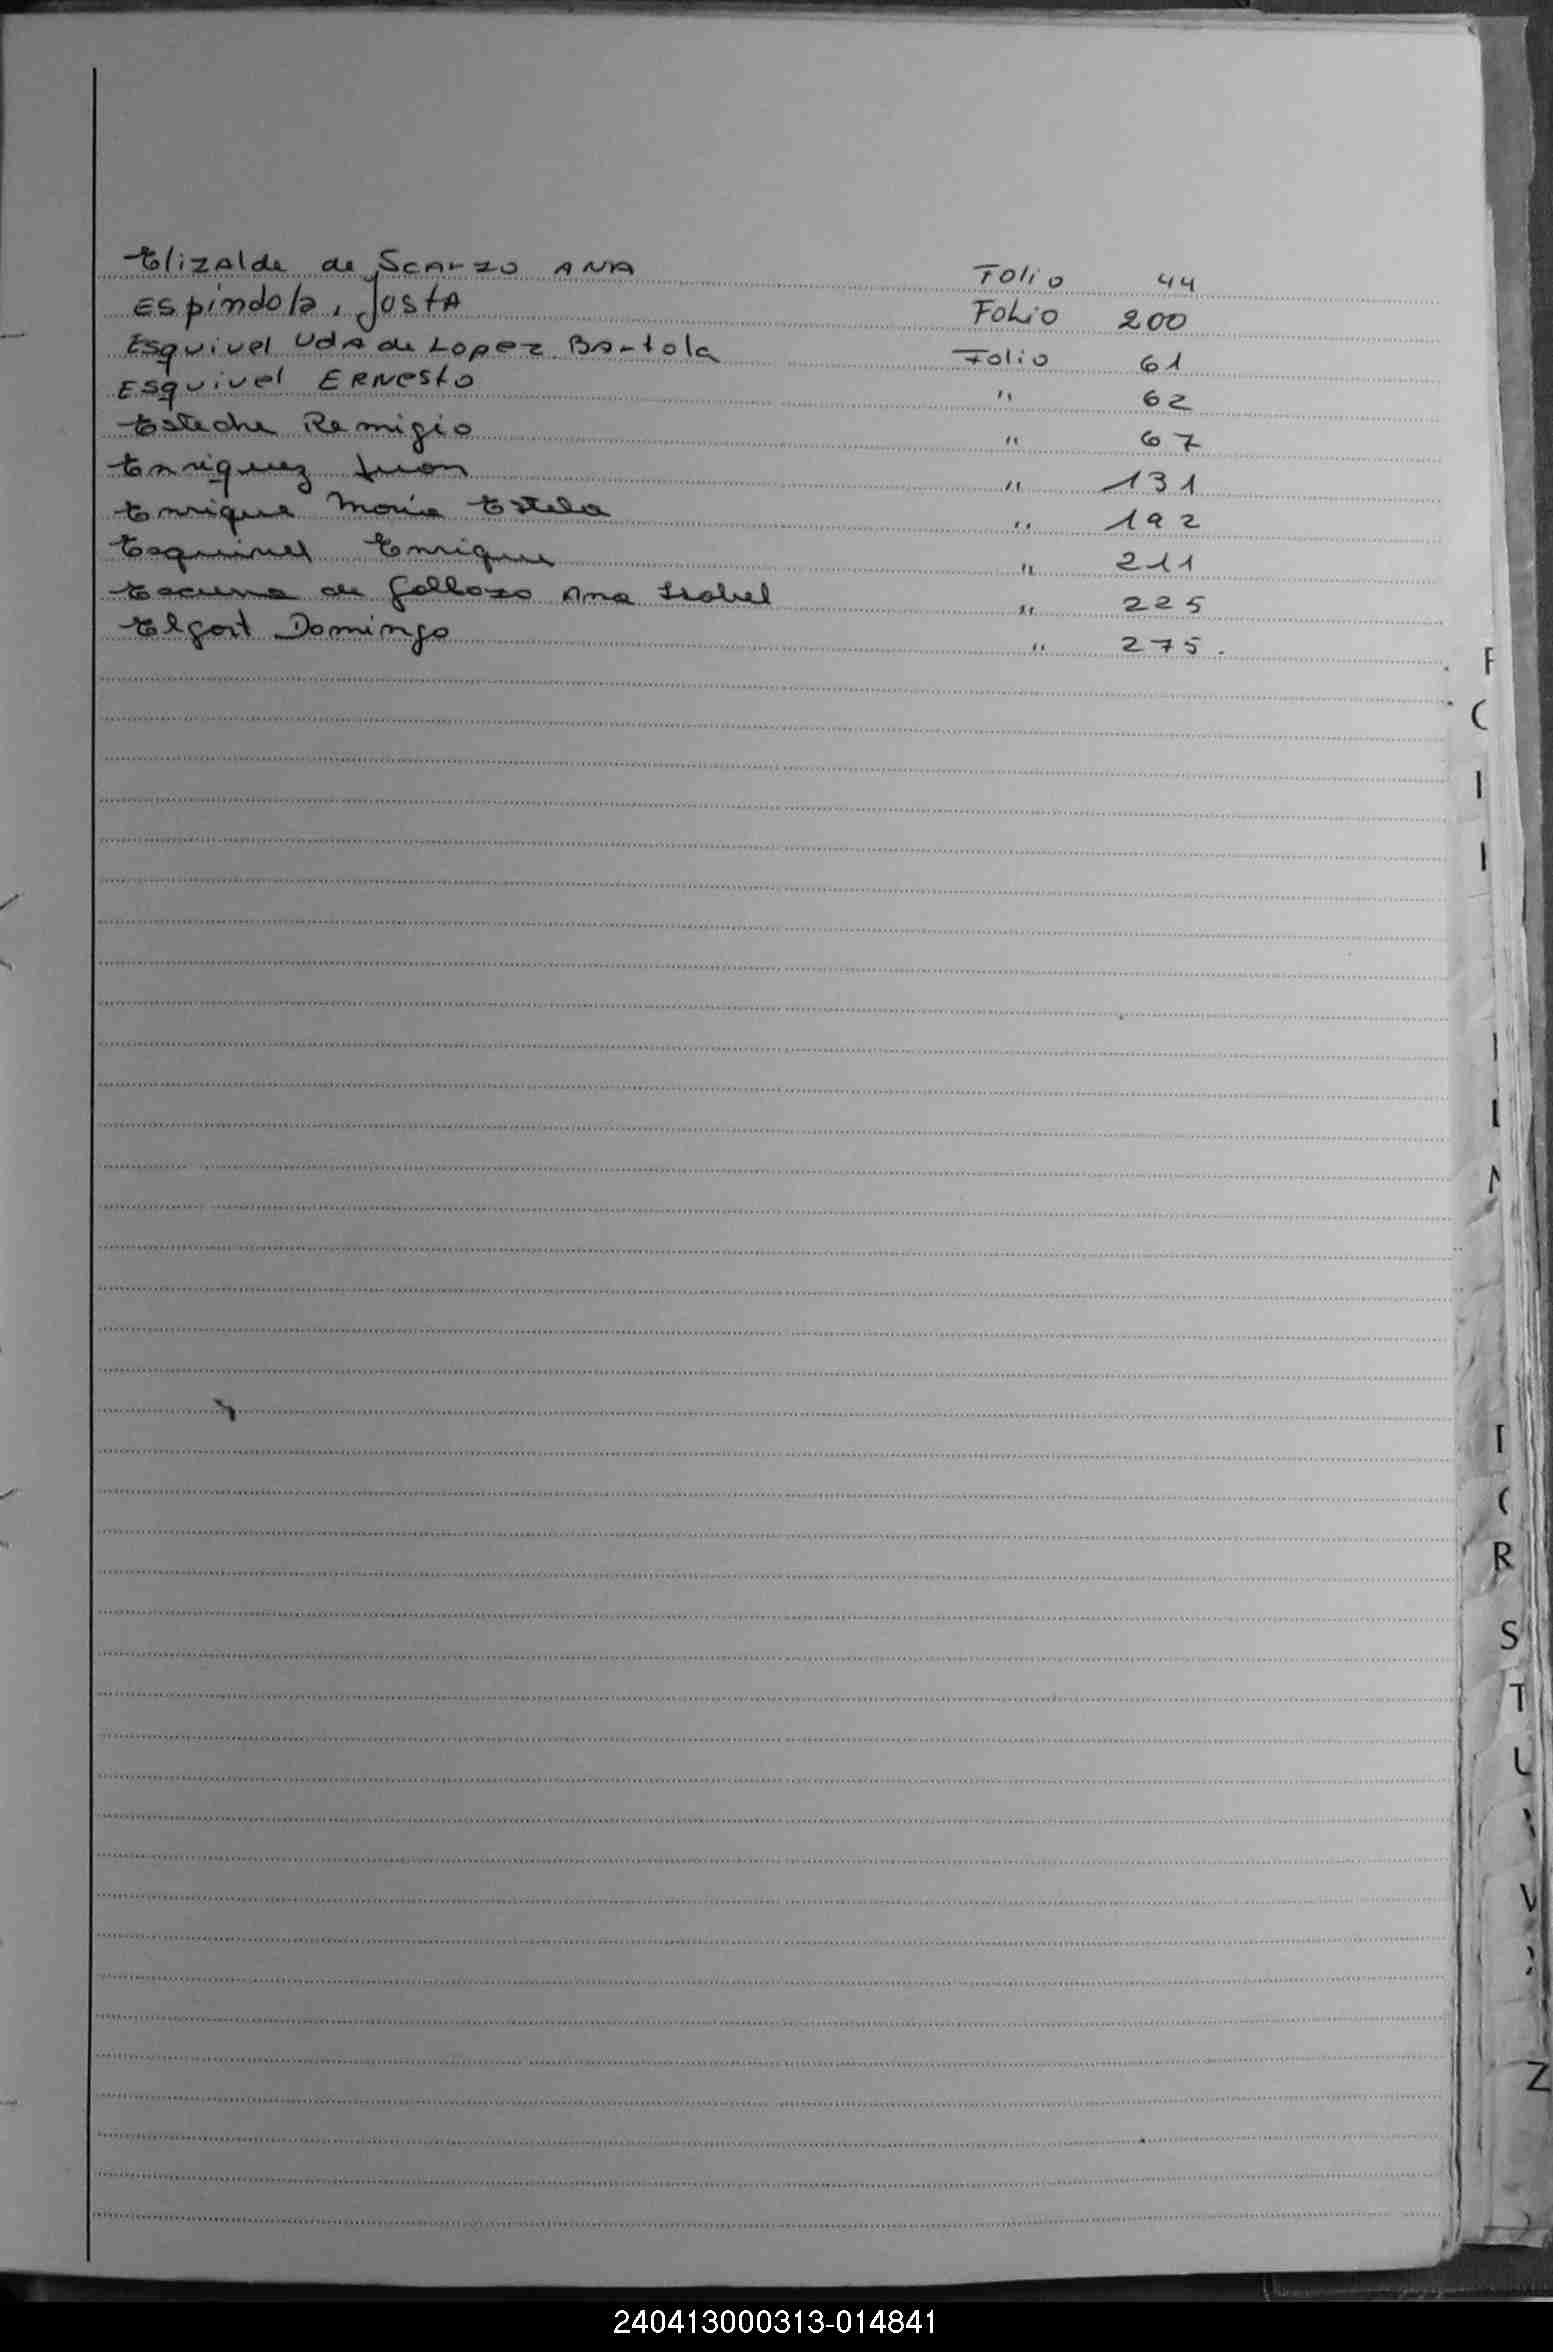 Elizalde de Scarzo ANA Folio 44
Espíndola, Justa Folio 200
Esquivel Vda de Lopez Bartola Folio 61
Esquivel ERNESTO " 62
Esteche Remigio " 67
Enriquez Juan " 131
Enrique Maria Estela " 192
Esquivel Enrique " 211
de Galloso Ana Isabel " 225
Elgart Domingo " 275.
R
S
T
V
Z
240413000313-014841